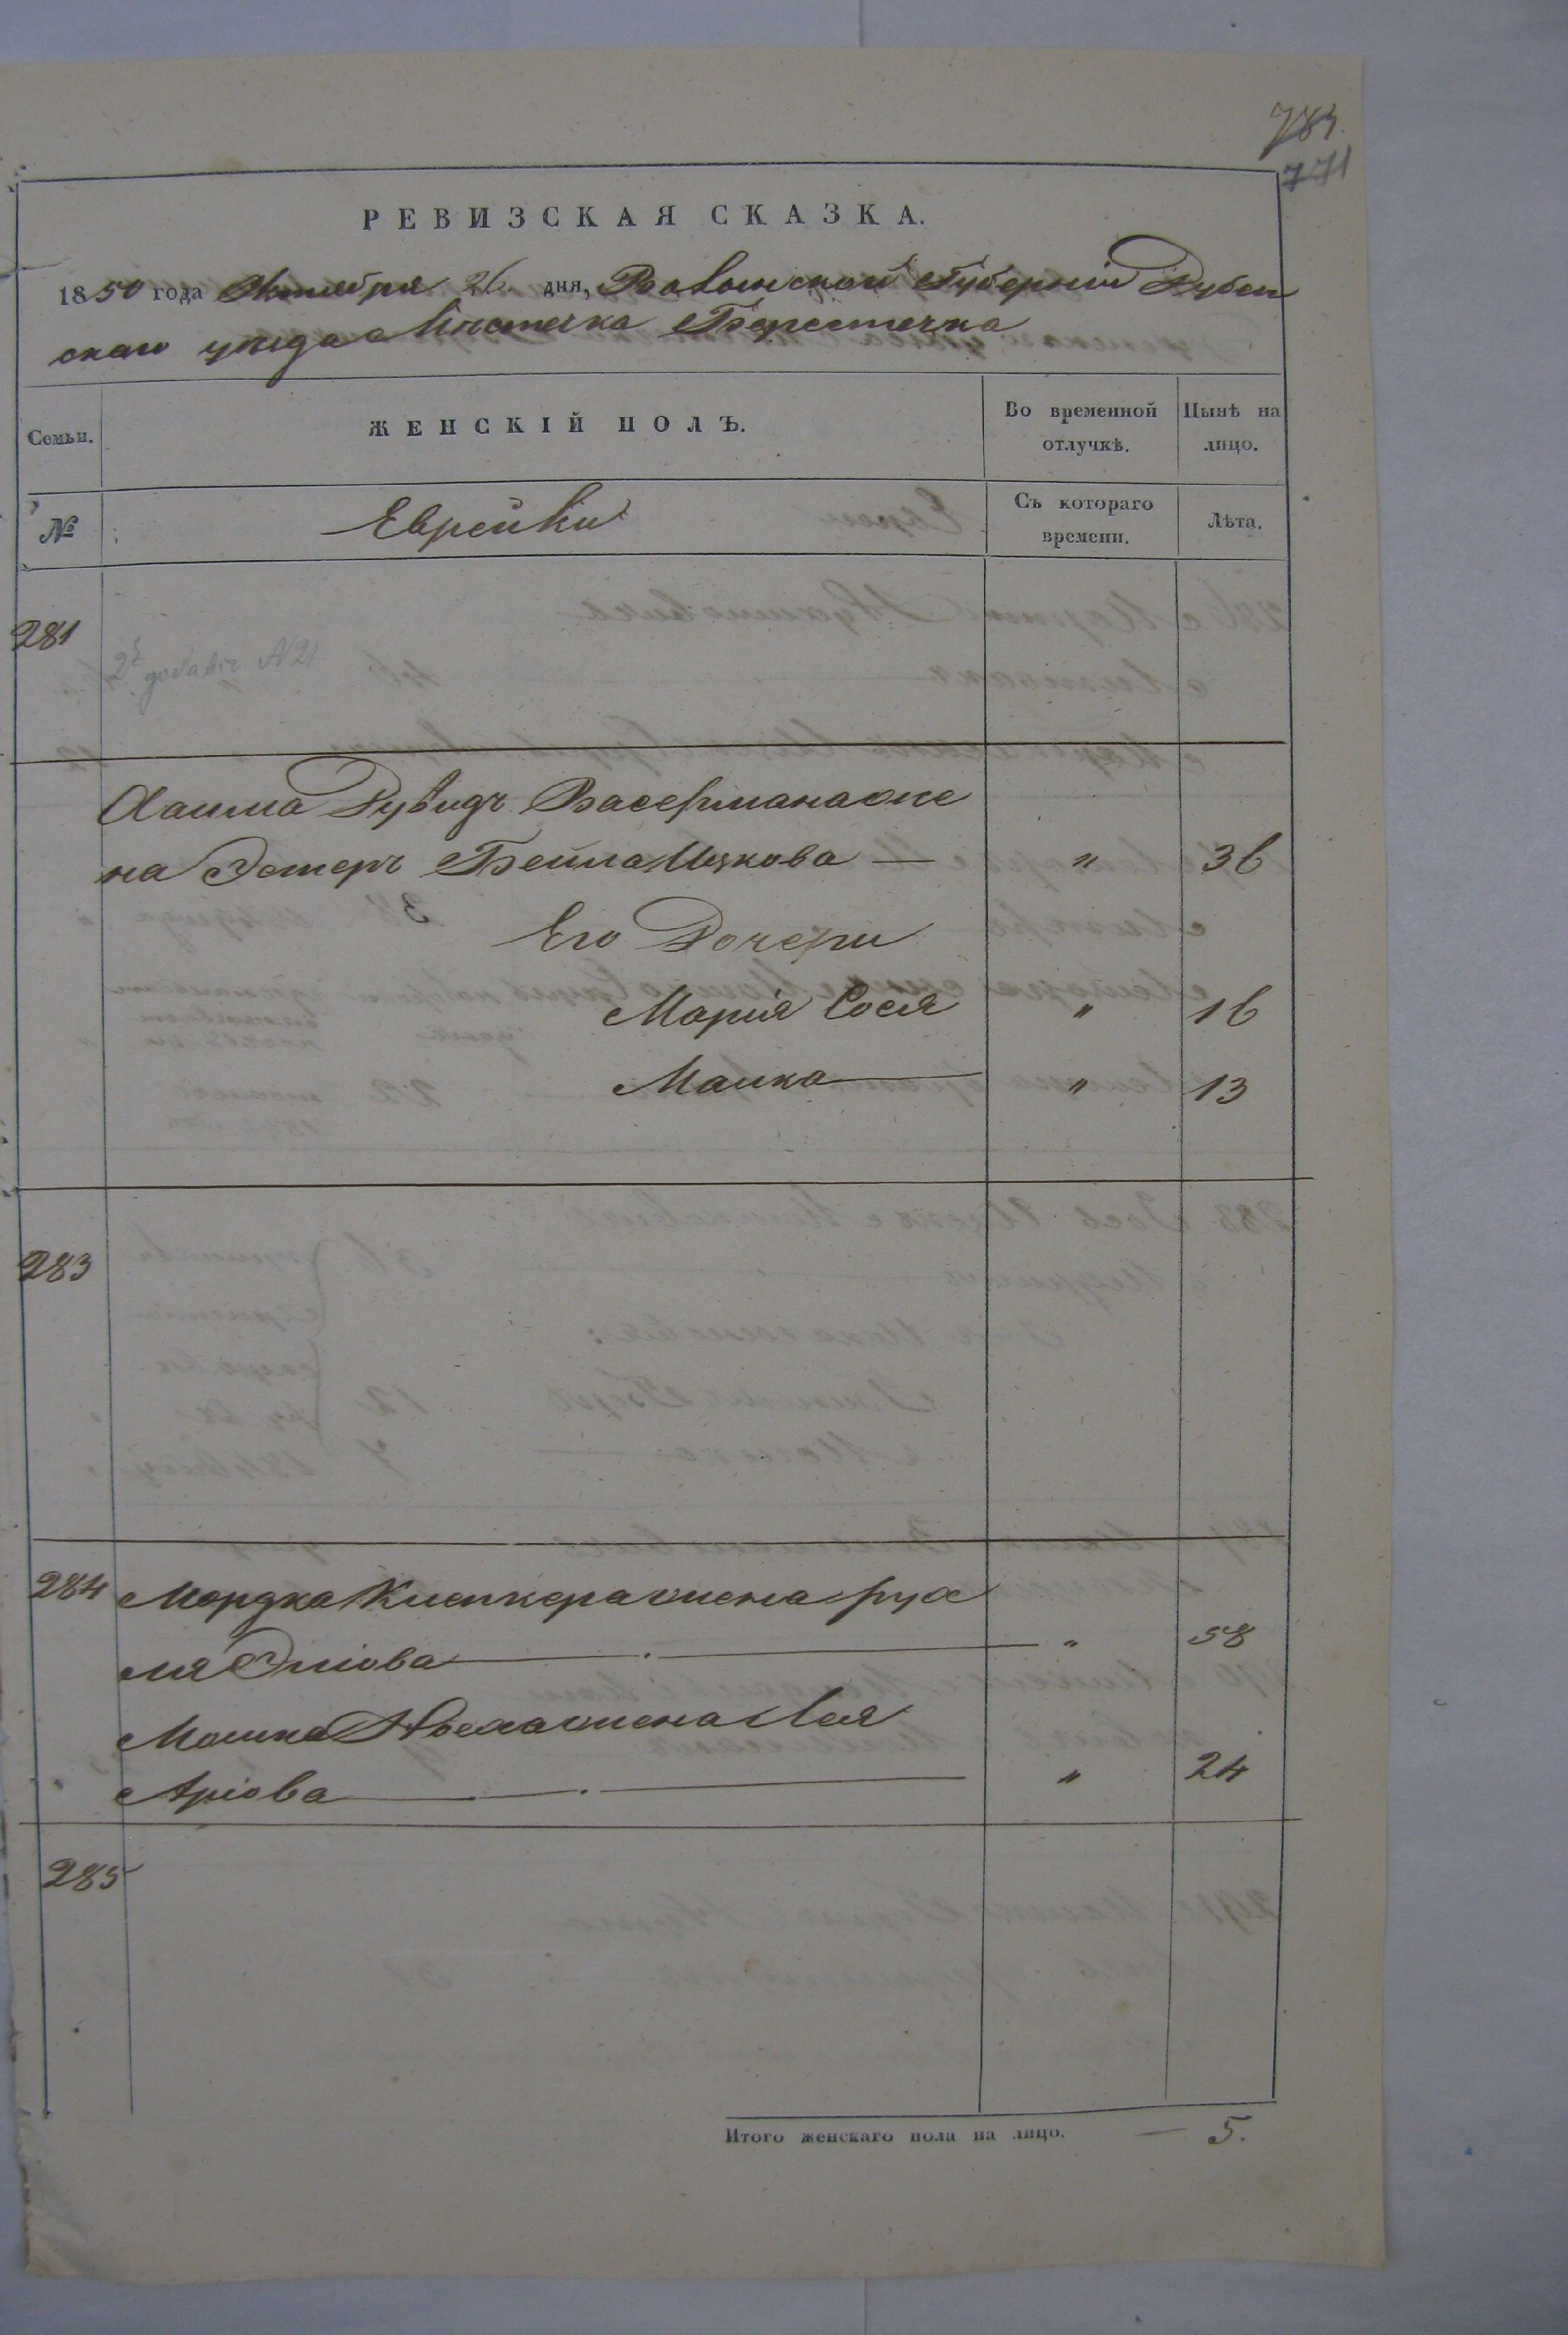 784.
771
РЕВИЗСКАЯ СКАЗКА.
1850 года Октября 26 дня, Волынской Губерніи Дубен
скаго уезда Местечка Берестечка
Семьи.
ЖЕНСКІЙ ПОЛЪ.
Во временной отлучкѣ.
Нынѣ на лицо.
№
Еврейки
Съ котораго времени.
Лѣта.
281
2й добавк. N 21
Хаима Рувидъ Васерманаже
на Эстеръ Бейла Ицкова — " 36
Его Дочери
Марія Сося " 16
Малка — " 13
283
284 Мордка Клепкера жена рух
ля Эліова — " 58
Мошка жена Лея
Аріова — " 24
285
Итого женскаго пола на лицо. — 5.